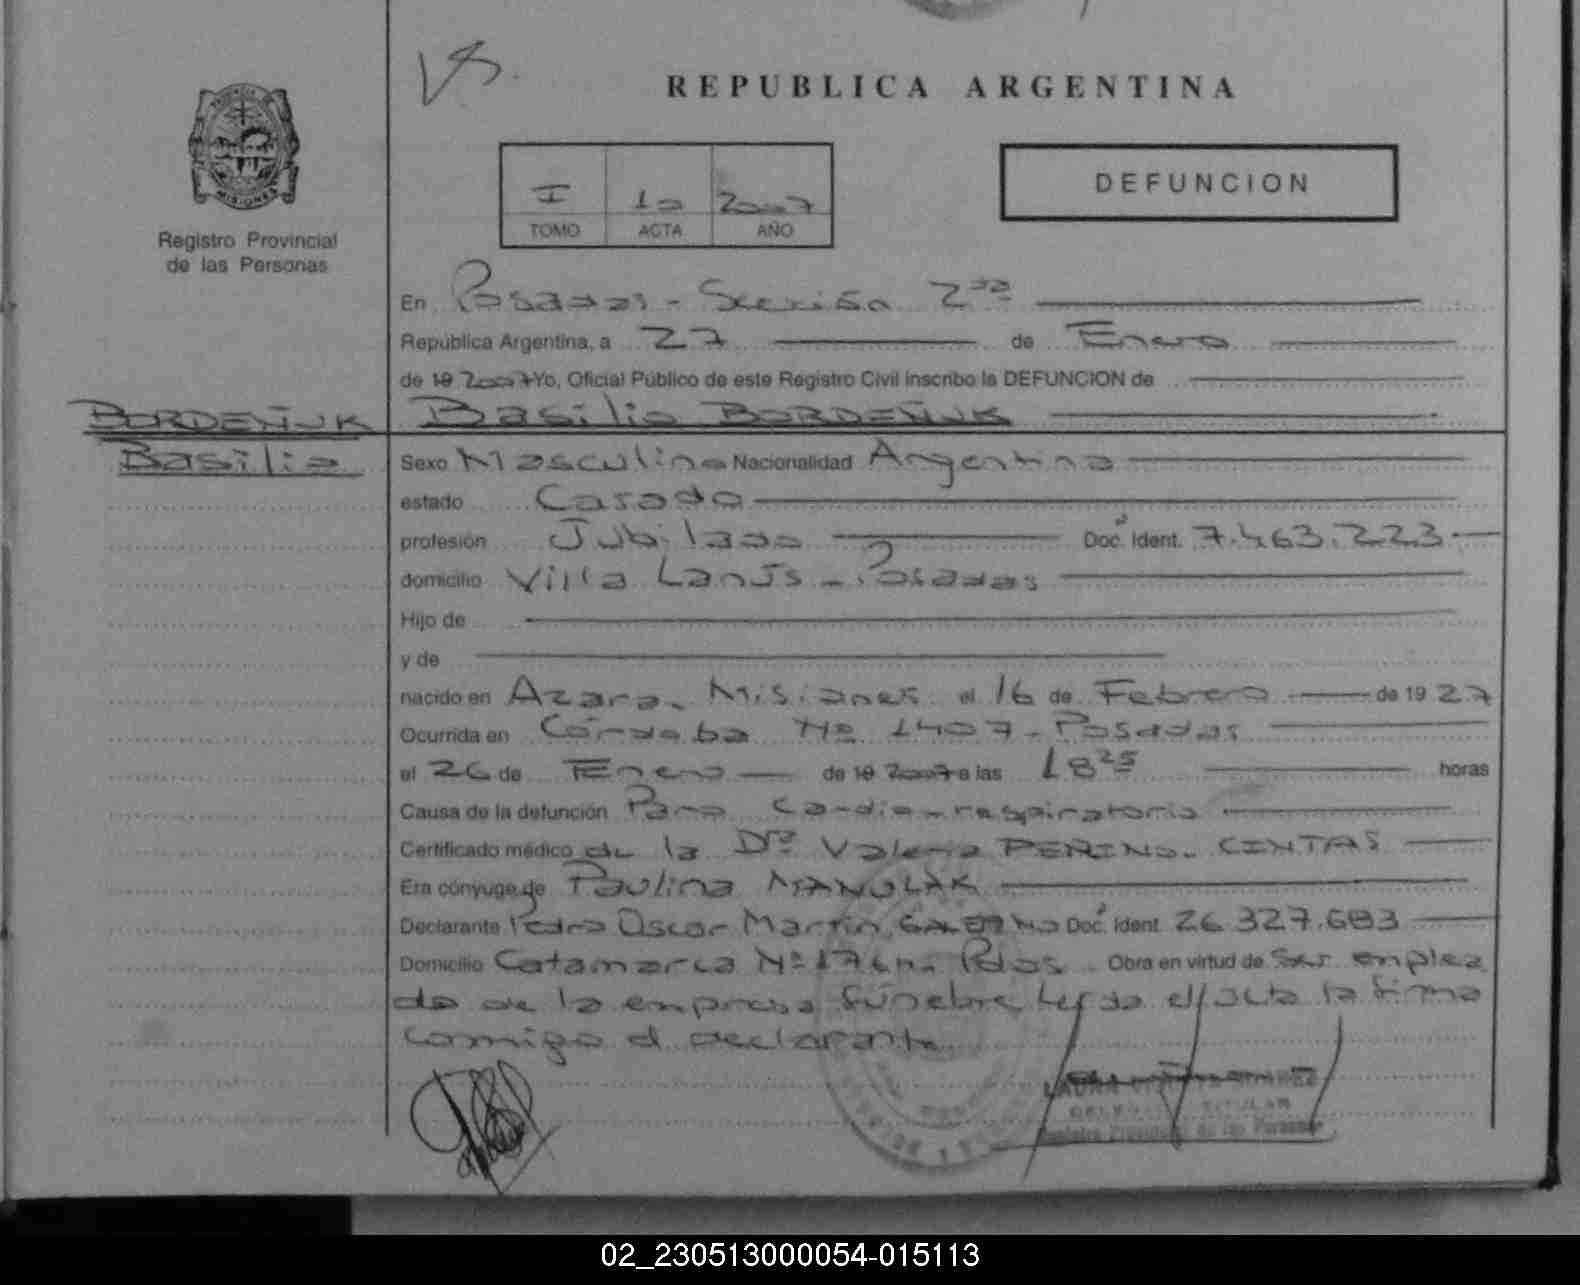 VS
REPUBLICA ARGENTINA
PROVINCIA
MISIONES
Registro Provincial
de las Personas
I 10 2007
TOMO ACTA AÑO
DEFUNCION
En Posadas - Sección 2da
República Argentina, a 27 de Enero
de 19 2007 Yo, Oficial Público de este Registro Civil inscribo la DEFUNCION de
BORDEÑUK Basilio BORDEÑUK
Basilio
Sexo Masculino Nacionalidad Argentina
estado Casado
profesión Jubilado Doc. Ident. 7.463.223
domicilio Villa Lanús - Posadas
Hijo de
y de
nacido en Azara, Misiones el 16 de Febrero de 1927
Ocurrida en Córdoba Nº 1407 - Posadas
el 26 de Enero de 19 2007 a las 18 25 horas
Causa de la defunción Paro cardio-respiratorio
Certificado médico de la Dra Valeria PERINO CINTAS
Era cónyuge de Paulina MANULAK
Declarante Pedro Oscar Martín Doc. Ident. 26.327.683
Domicilio Catamarca Nº Pdas. Obra en virtud de Ser emplea
do de la empresa fúnebre Leída el acta la firma
conmigo el declarante
LAURA
TITULAR
Registro Provincial de las Personas
02_230513000054-015113